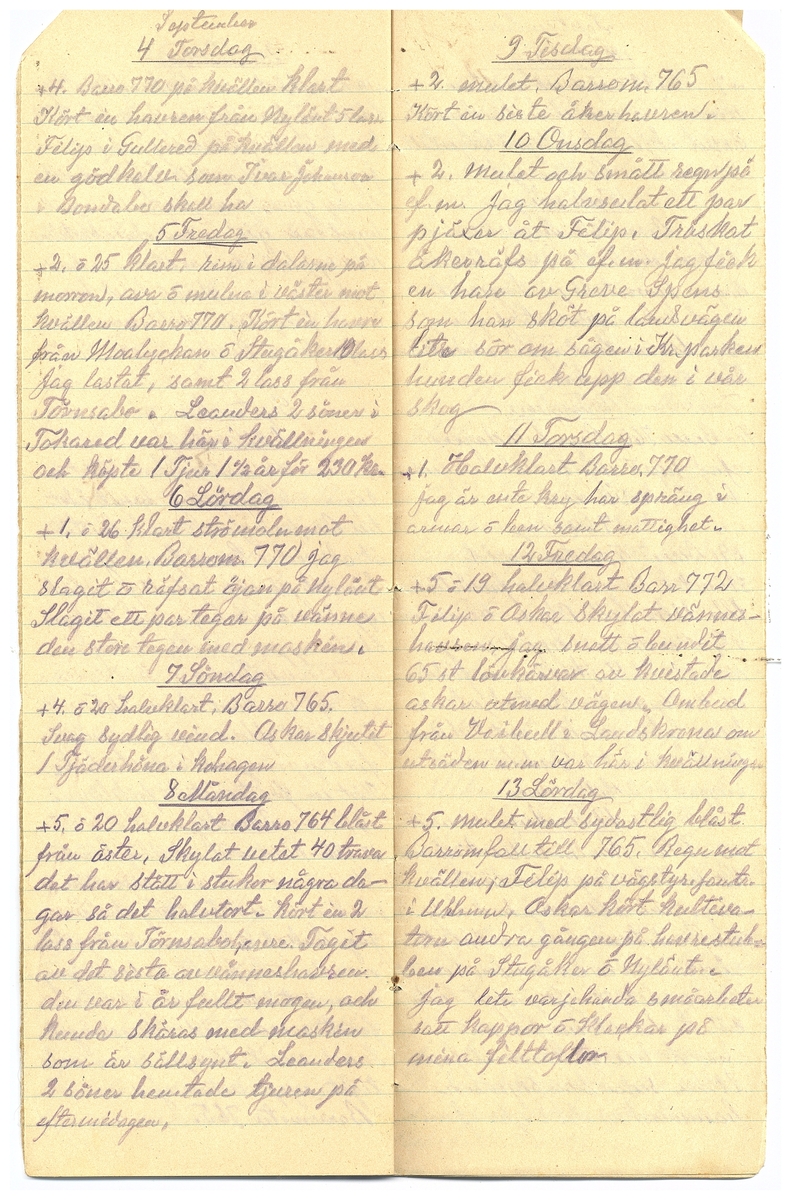 September
4 Torsdag
+4. Barro 770 på kvällen klart
Kört in havren från Nylänt 5 lass
Filip i Gullered på kvällen med
en gödkalv som Ivar Johanson
i Bondabo skall ha
5 Fredag
+2. ö 25 klart, rim i dalarne på
morron, ava ö mulna i väster mot
kvällen Barro 770. Kört in havre
från Moalyckan ö Stugåker 10 lass
jag lastat, samt 2 lass från
Törnsabo. Leanders 2 söner i
Tokared var här i kvällningen
och köpte 1 Tjur 1½ år för 230 Kr.
6 Lördag
+1. ö 26 klart strömoln mot
kvällen. Barrom. 770 jag
slagit ö räfsat öjan på Nylänt
Slagit ett par tegar på vänne
den store tegen med maskin.
7 Söndag
+4 ö 20 halvklart, Barro 765.
Svag sydlig vind. Oskar skjutit
1 Tjäderhöna i kohagen
8 Måndag
+5. ö 20 halvklart Barro 764 blåst
från öster, Skylat vetet 40 travar
det har stått i stukor några da-
gar så det halvtort. Kört in 2
lass från Törnsabo, havre. Tagit
av det sista av vänneshavren.
den var i år fullt mogen, och
kunda skäras med maskin
som är sällsynt. Leanders
2 söner hemtade tjuren på
eftermidagen.
9 Tisdag
+2. mulet, Barrom. 765
Kört in siste åkerhavren.
10 Onsdag
+2. Mulet och smått regn på
ef.m. Jag halvsulat ett par
pjäxer åt Filip. Tröskat
åkerräfs på ef.m. jag fick
en hare av Greve Spens
som han sköt på landsvägen
lite sör om sågen i Kr. parken
hunden fick upp den i vår
skog
11 Torsdag
+1. Halvklart Barro. 770
jag är inte kry har spräng i
armar ö ben samt mattighet.
12 Fredag
+5 ö 19 halvklart Barr 772
Filip ö Oskar Skylat vännes-
havren jag snitt ö bundit
65 st lövkärvar av kvistade
askar utmed vägen. Ombud
från Weibull i Landskrona om
utsäden m.m var här i kvällningen
13 Lördag
+5. Mulet med sydostlig blåst.
Barromfall till 765. Regn mot
kvällen, Filip på vägstyr.
i Ulrhmn, Oskar kört kultiva-
torn andra gången på havrestub-
ben på Stugåker ö Nylänt.
jag lite varjehanda småarbeten
satt kappor ö klackar på
mina filttoflor